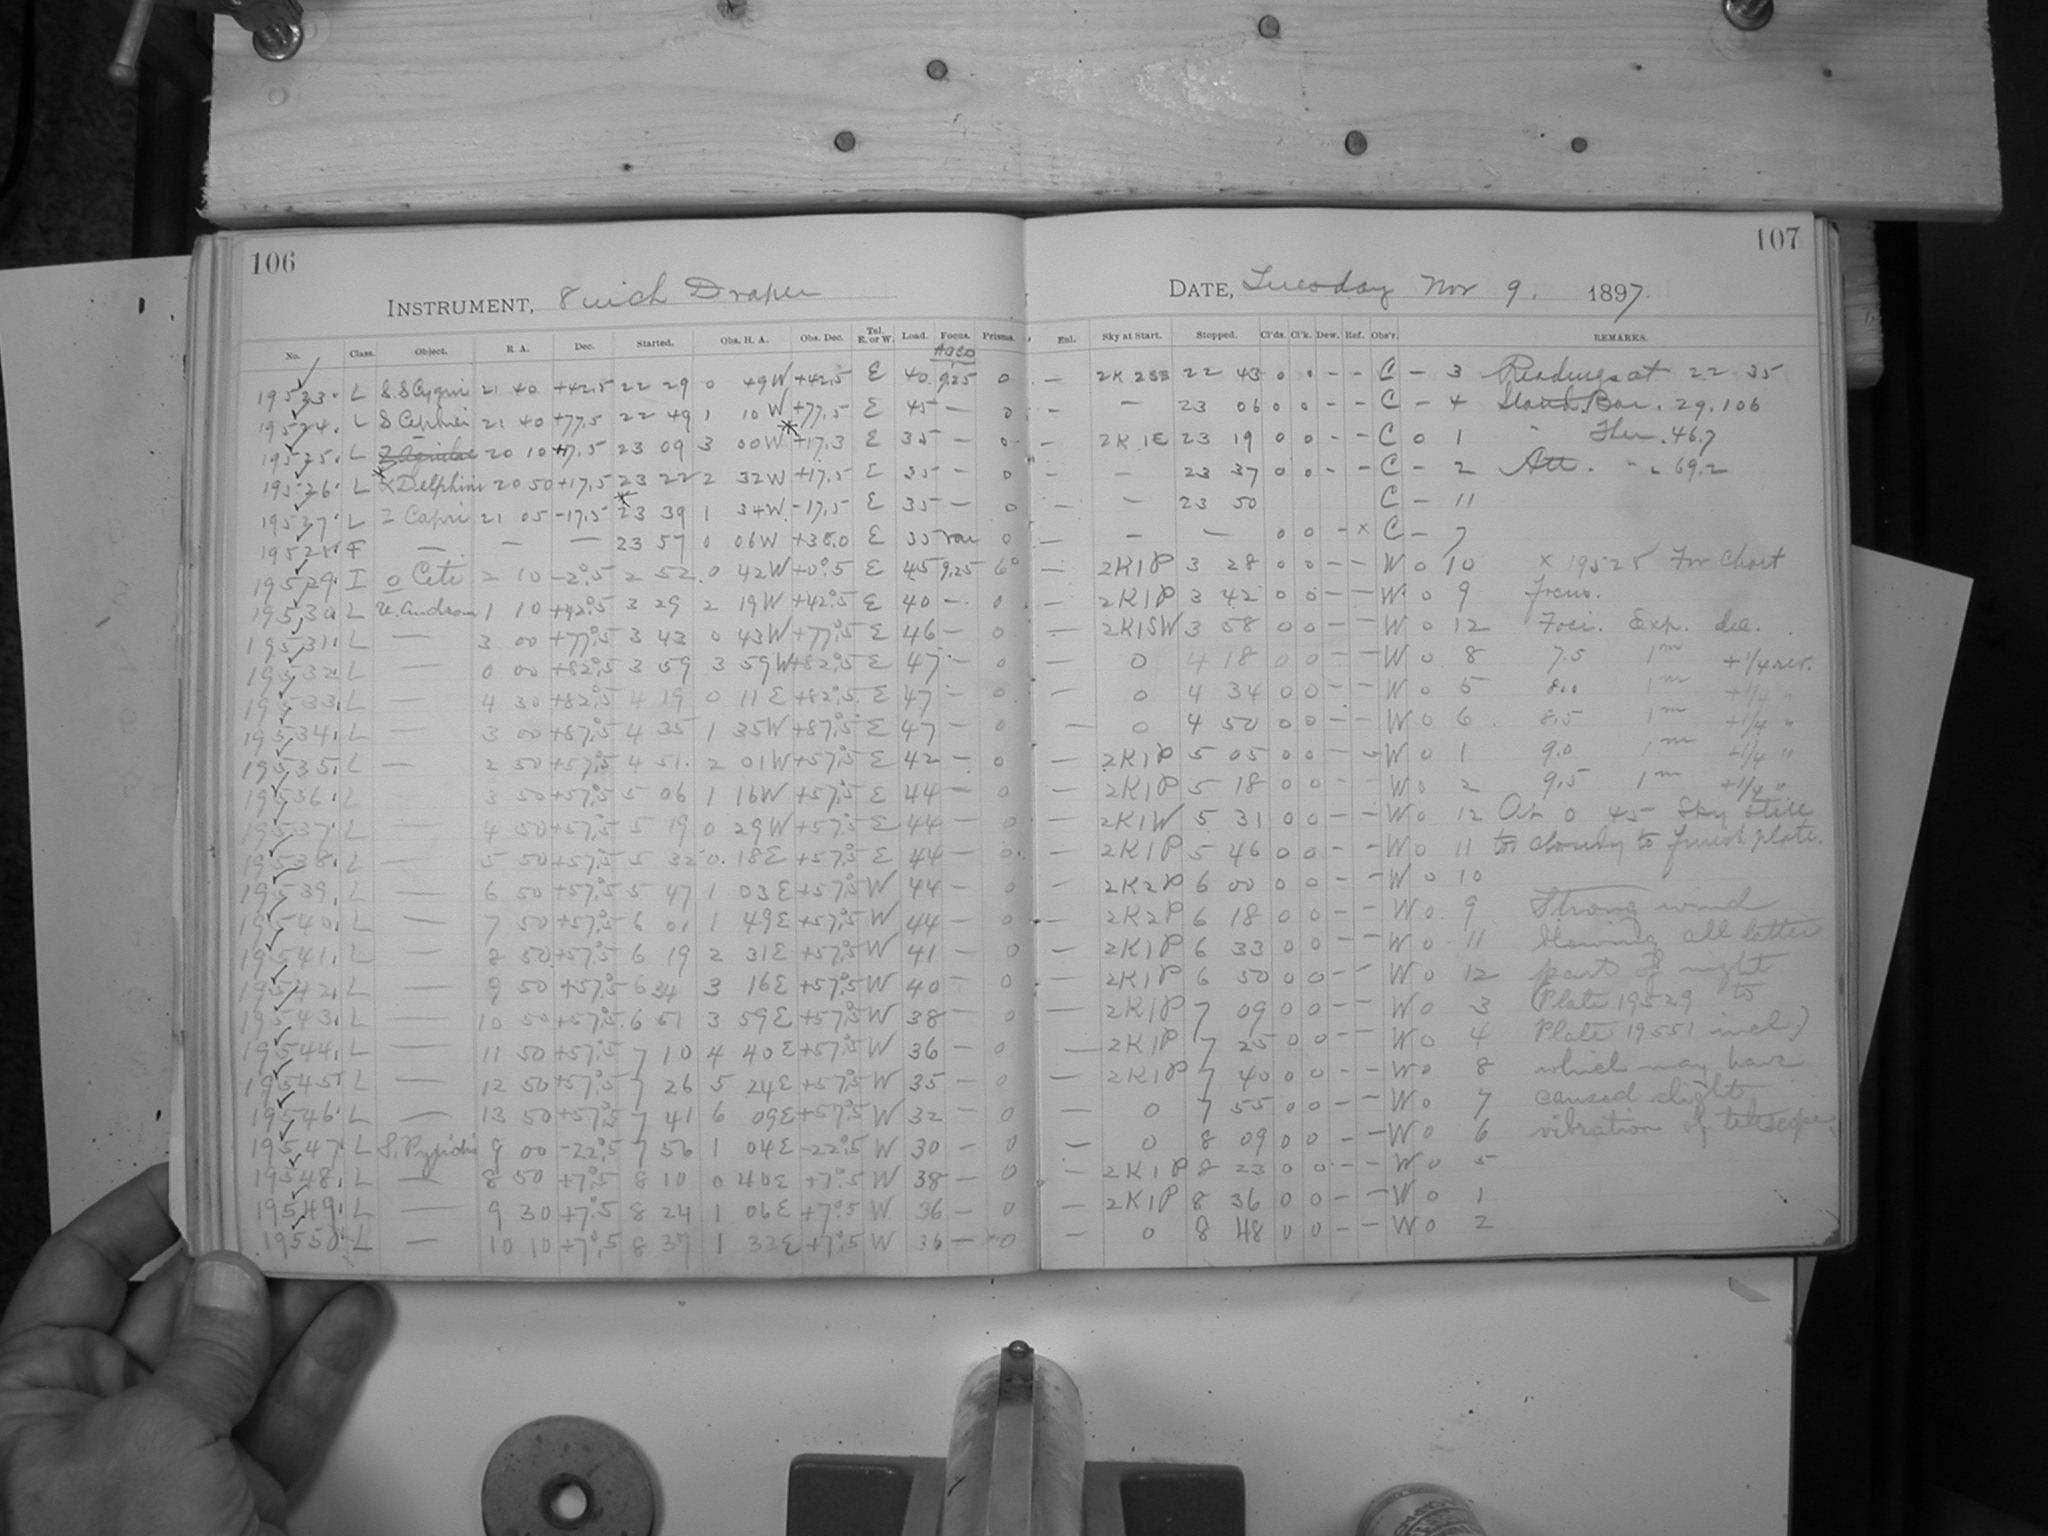 106
INSTRUMENT, 8 inch Draper
No. Class. Object. R. A. Dec. Started. Obs. H. A. Obs. Dec. Tel. E. or W. Load. Focus. Prisms.
19523. L S.S Cygni 21 40 +42.5 22 29 0 49W +42.5 E 40 9.25 0
19524. L S Cephei 21 40 +77.5 22 49 1 10W +77.5 E 45 — 0
19525. L Z Aquilae 20 10 +17.5 23 09 3 00W +17.3 E 35 — 0
19526. L X Delphini 20 50 +17.5 23 22 2 32W +17.5 E 35 — 0
19527. L Z Capri 21 05 -17.5 23 39 1 34W -17.5 E 35 — 0
19528. F — — — 23 57 0 06W +38.0 E 35 var 0
19529. I o Ceti 2 10 -2°.5 2 52 0 42W +0°.5 E 45 9.25 6°
19530. L U. Androm 1 10 +42°.5 3 29 2 19W +42°.5 E 40 — 0
19531. L — 3 00 +77°.5 3 43 0 43W +77°.5 E 46 — 0
19532. L — 0 00 +82°.5 3 59 3 59W +82°.5 E 47 — 0
19533. L — 4 30 +82°.5 4 19 0 11E +82°.5 E 47 — 0
19534. L — 3 00 +87°.5 4 35 1 35W +87°.5 E 47 — 0
19535. L — 2 50 +57°.5 4 51 2 01W +57°.5 E 42 — 0
19536. L — 3 50 +57°.5 5 06 1 16W +57°.5 E 44 — 0
19537. L — 4 50 +57°.5 5 19 0 29W +57°.5 E 44 — 0
19538. L — 5 50 +57°.5 5 32 0 18E +57°.5 E 44 — 0
19539. L — 6 50 +57°.5 5 47 1 03E +57°.5 W 44 — 0
19540. L — 7 50 +57°.5 6 01 1 49E +57°.5 W 44 — 0
19541. L — 8 50 +57°.5 6 19 2 31E +57°.5 W 41 — 0
19542. L — 9 50 +57°.5 6 34 3 16E +57°.5 W 40 — 0
19543. L — 10 50 +57°.5 6 51 3 59E +57°.5 W 38 — 0
19544. L — 11 50 +57°.5 7 10 4 40E +57°.5 W 36 — 0
19545. L — 12 50 +57°.5 7 26 5 24E +57°.5 W 35 — 0
19546. L — 13 50 +57°.5 7 41 6 09E +57°.5 W 32 — 0
19547. L S. Pyxidis 9 00 -22°.5 7 56 1 04E -22°.5 W 30 — 0
19548. L — 8 50 +7°.5 8 10 0 40E +7°.5 W 38 — 0
19549. L — 9 30 +7°.5 8 24 1 06E +7°.5 W 36 — 0
19550. L — 10 10 +7°.5 8 37 1 33E +7°.5 W 36 — 0
107
DATE, Tuesday Nov 9. 1897.
Enl. Sky at Start. Stopped. Cl'ds. Cl'k. Dew. Ref. Obs'r. REMARKS.
— 2K 2SE 22 43 0 0 - - C - 3 Readings at 22 35
— — 23 06 0 0 - - C - 4 Stand. Bar. 29.106
— 2K1E 23 19 0 0 - - C 0 1 " Ther. 46.7
— — 23 37 0 0 - - C - 2 Att. " 69.2
— — 23 50 C - 11
— — — 0 0 - x C - 7
— 2K1P 3 28 0 0 - - W 0 10 x 19528 For Chart
— 2K1P 3 42 0 0 - - W 0 9 Focus.
— 2K1SW 3 58 0 0 - - W 0 12 Foci. Exp. dec.
— 0 4 18 0 0 - - W 0 8 7.5 1m +1/4 rev.
— 0 4 34 0 0 - - W 0 5 8.0 1m +1/4 "
— 0 4 50 0 0 - - W 0 6 8.5 1m +1/4 "
— 2K1P 5 05 0 0 - - W 0 1 9.0 1m +1/4 "
— 2K1P 5 18 0 0 - - W 0 2 9.5 1m +1/4 "
— 2K1W 5 31 0 0 - - W 0 12 At 0 45 Sky still
— 2K1P 5 46 0 0 - - W 0 11 too cloudy to finish plate.
— 2K2P 6 00 0 0 - - W 0 10
— 2K2P 6 18 0 0 - - W 0 9 Strong wind
— 2K1P 6 33 0 0 - - W 0 11 blowing all latter
— 2K1P 6 50 0 0 - - W 0 12 part of night
— 2K1P 7 09 0 0 - - W 0 3 (Plate 19529 to
— 2K1P 7 25 0 0 - - W 0 4 Plate 19551 incl)
— 2K1P 7 40 0 0 - - W 0 8 which may have
— 0 7 55 0 0 - - W 0 7 caused slight
— 0 8 09 0 0 - - W 0 6 vibration of telescope.
— 2K1P 8 23 0 0 - - W 0 5
— 2K1P 8 36 0 0 - - W 0 1
— 0 8 48 0 0 - - W 0 2